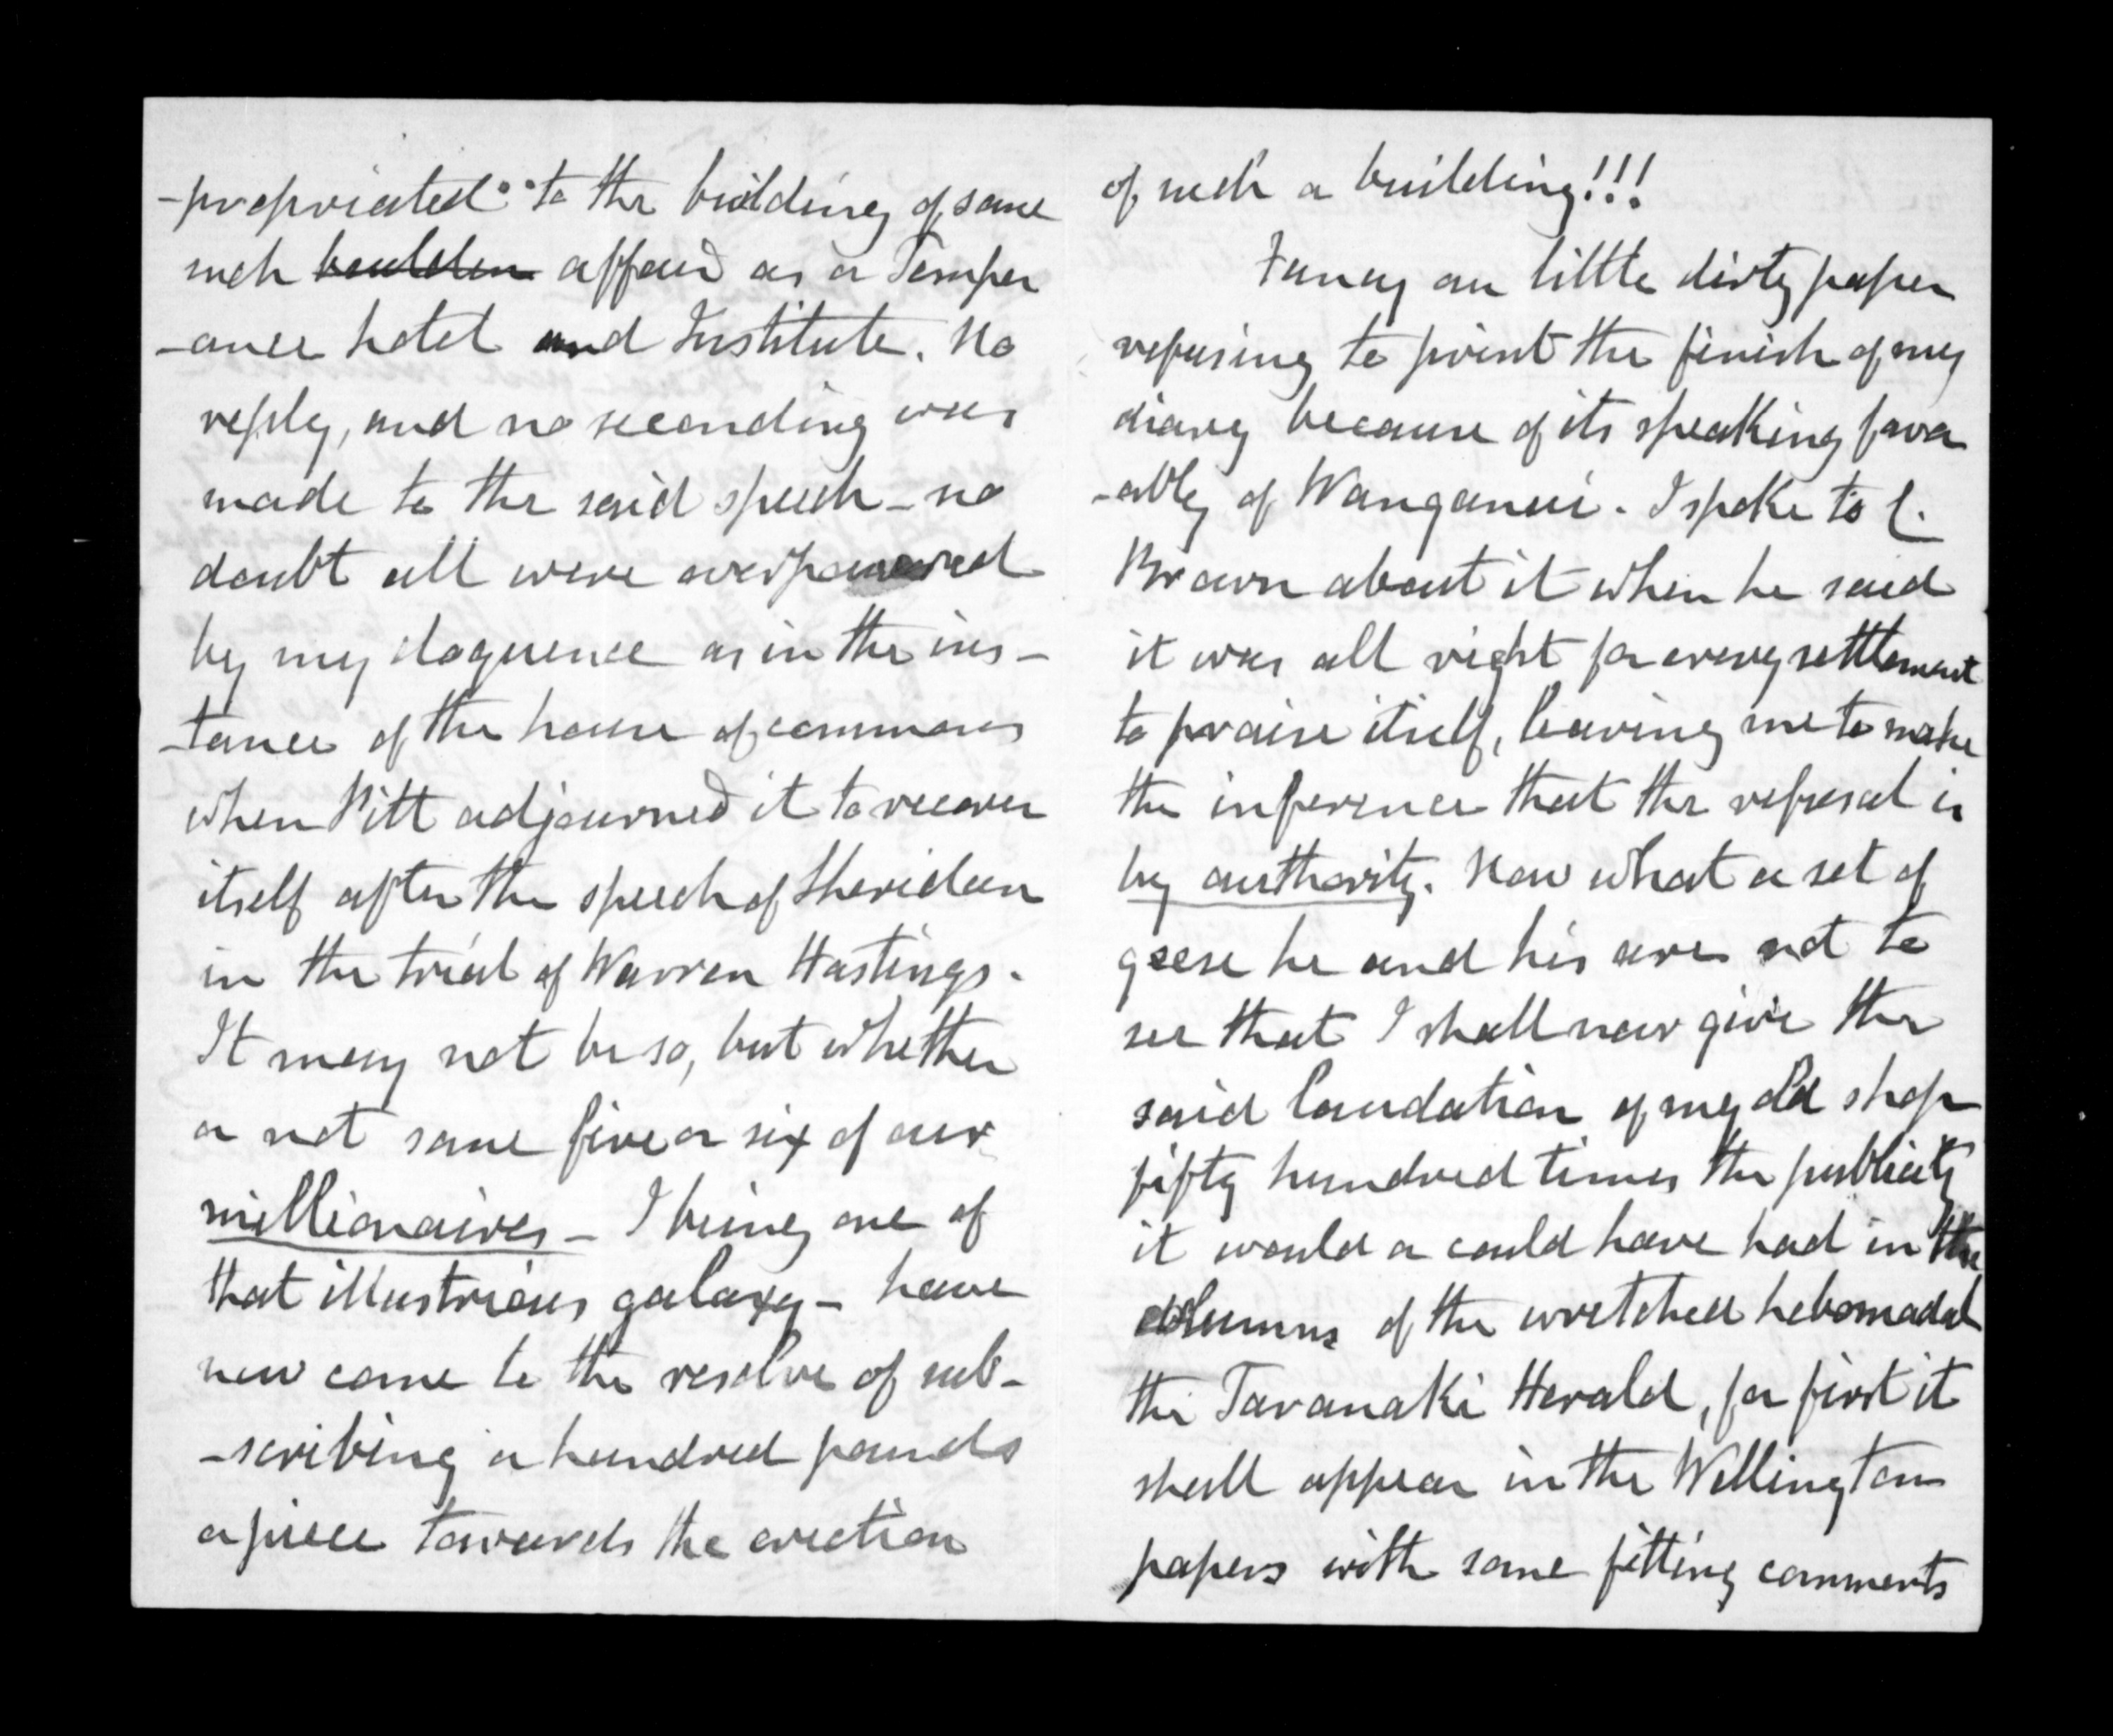 -propriated to the building of some
such affair as a Temper
-ance hotel and Institute. No
reply, and no seconding was
made to the said speech - no
doubt all were overpowered
by my eloquence as in the ins-
-tance of the house of commons
when Pitt adjourned it to recover
itself after the speech of Sheridan
in the trial of Warren Hastings.
It may not be so, but whether
or not some five or six of our
millionaires - I being one of
that illustrious galaxy - have
now come to the resolve of sub-
-scribing a hundred pounds
apiece towards the erection
of such a building!!!
Fancy our little dirty paper
refusing to print the finish of my
diary because of its speaking favor
-ably of Wanganui. I spoke to C.
Brown about it when he said
it was all right for every settlement
to praise itself, leaving me to make
the inference that the refusal is
by authority. Now what a set of
geese he and his are not to
see that I shall now give the
said laudation of my old shop
fifty hundred times the publicity
it would or could have had in the
columns of the wretched hebomadal
the Taranaki Herald, for first it
shall appear in the Wellington
papers with some fitting comments